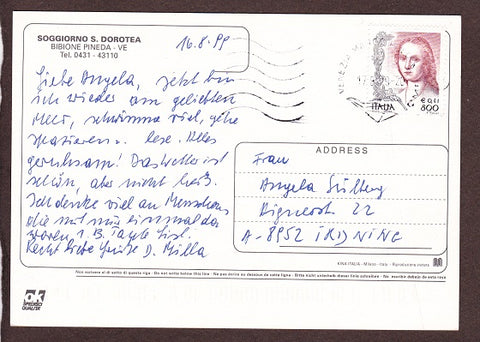 SOGGIORNO S. DOROTEA
BIBIONE PINEDA - VE
Tel. 0431 - 43110
16.8.99
Liebe Angela, jetzt bin
ich wieder am geliebten
Meer, schwimme viel, gehe
spazieren u. lese. Alles
geruhsam! Das Wetter ist
schön, aber nicht heiß.
Ich denke viel an Menschen
die mit mir einmal da
waren, z. B. Tante
Recht liebe Grüße D. Milla
ITALIA
800
ADDRESS
Frau
Angela
22
A-8952 IRDNING
KINA ITALIA - Milano - Italy - Riproduzione vietata
Non scrivere al di sotto di questa riga - Do not write below this line - Ne pas écrire au dessous de cette ligne - Bitte nicht unterhalb dieser Linie schreiben - No escribir debajo de esta raya
ok